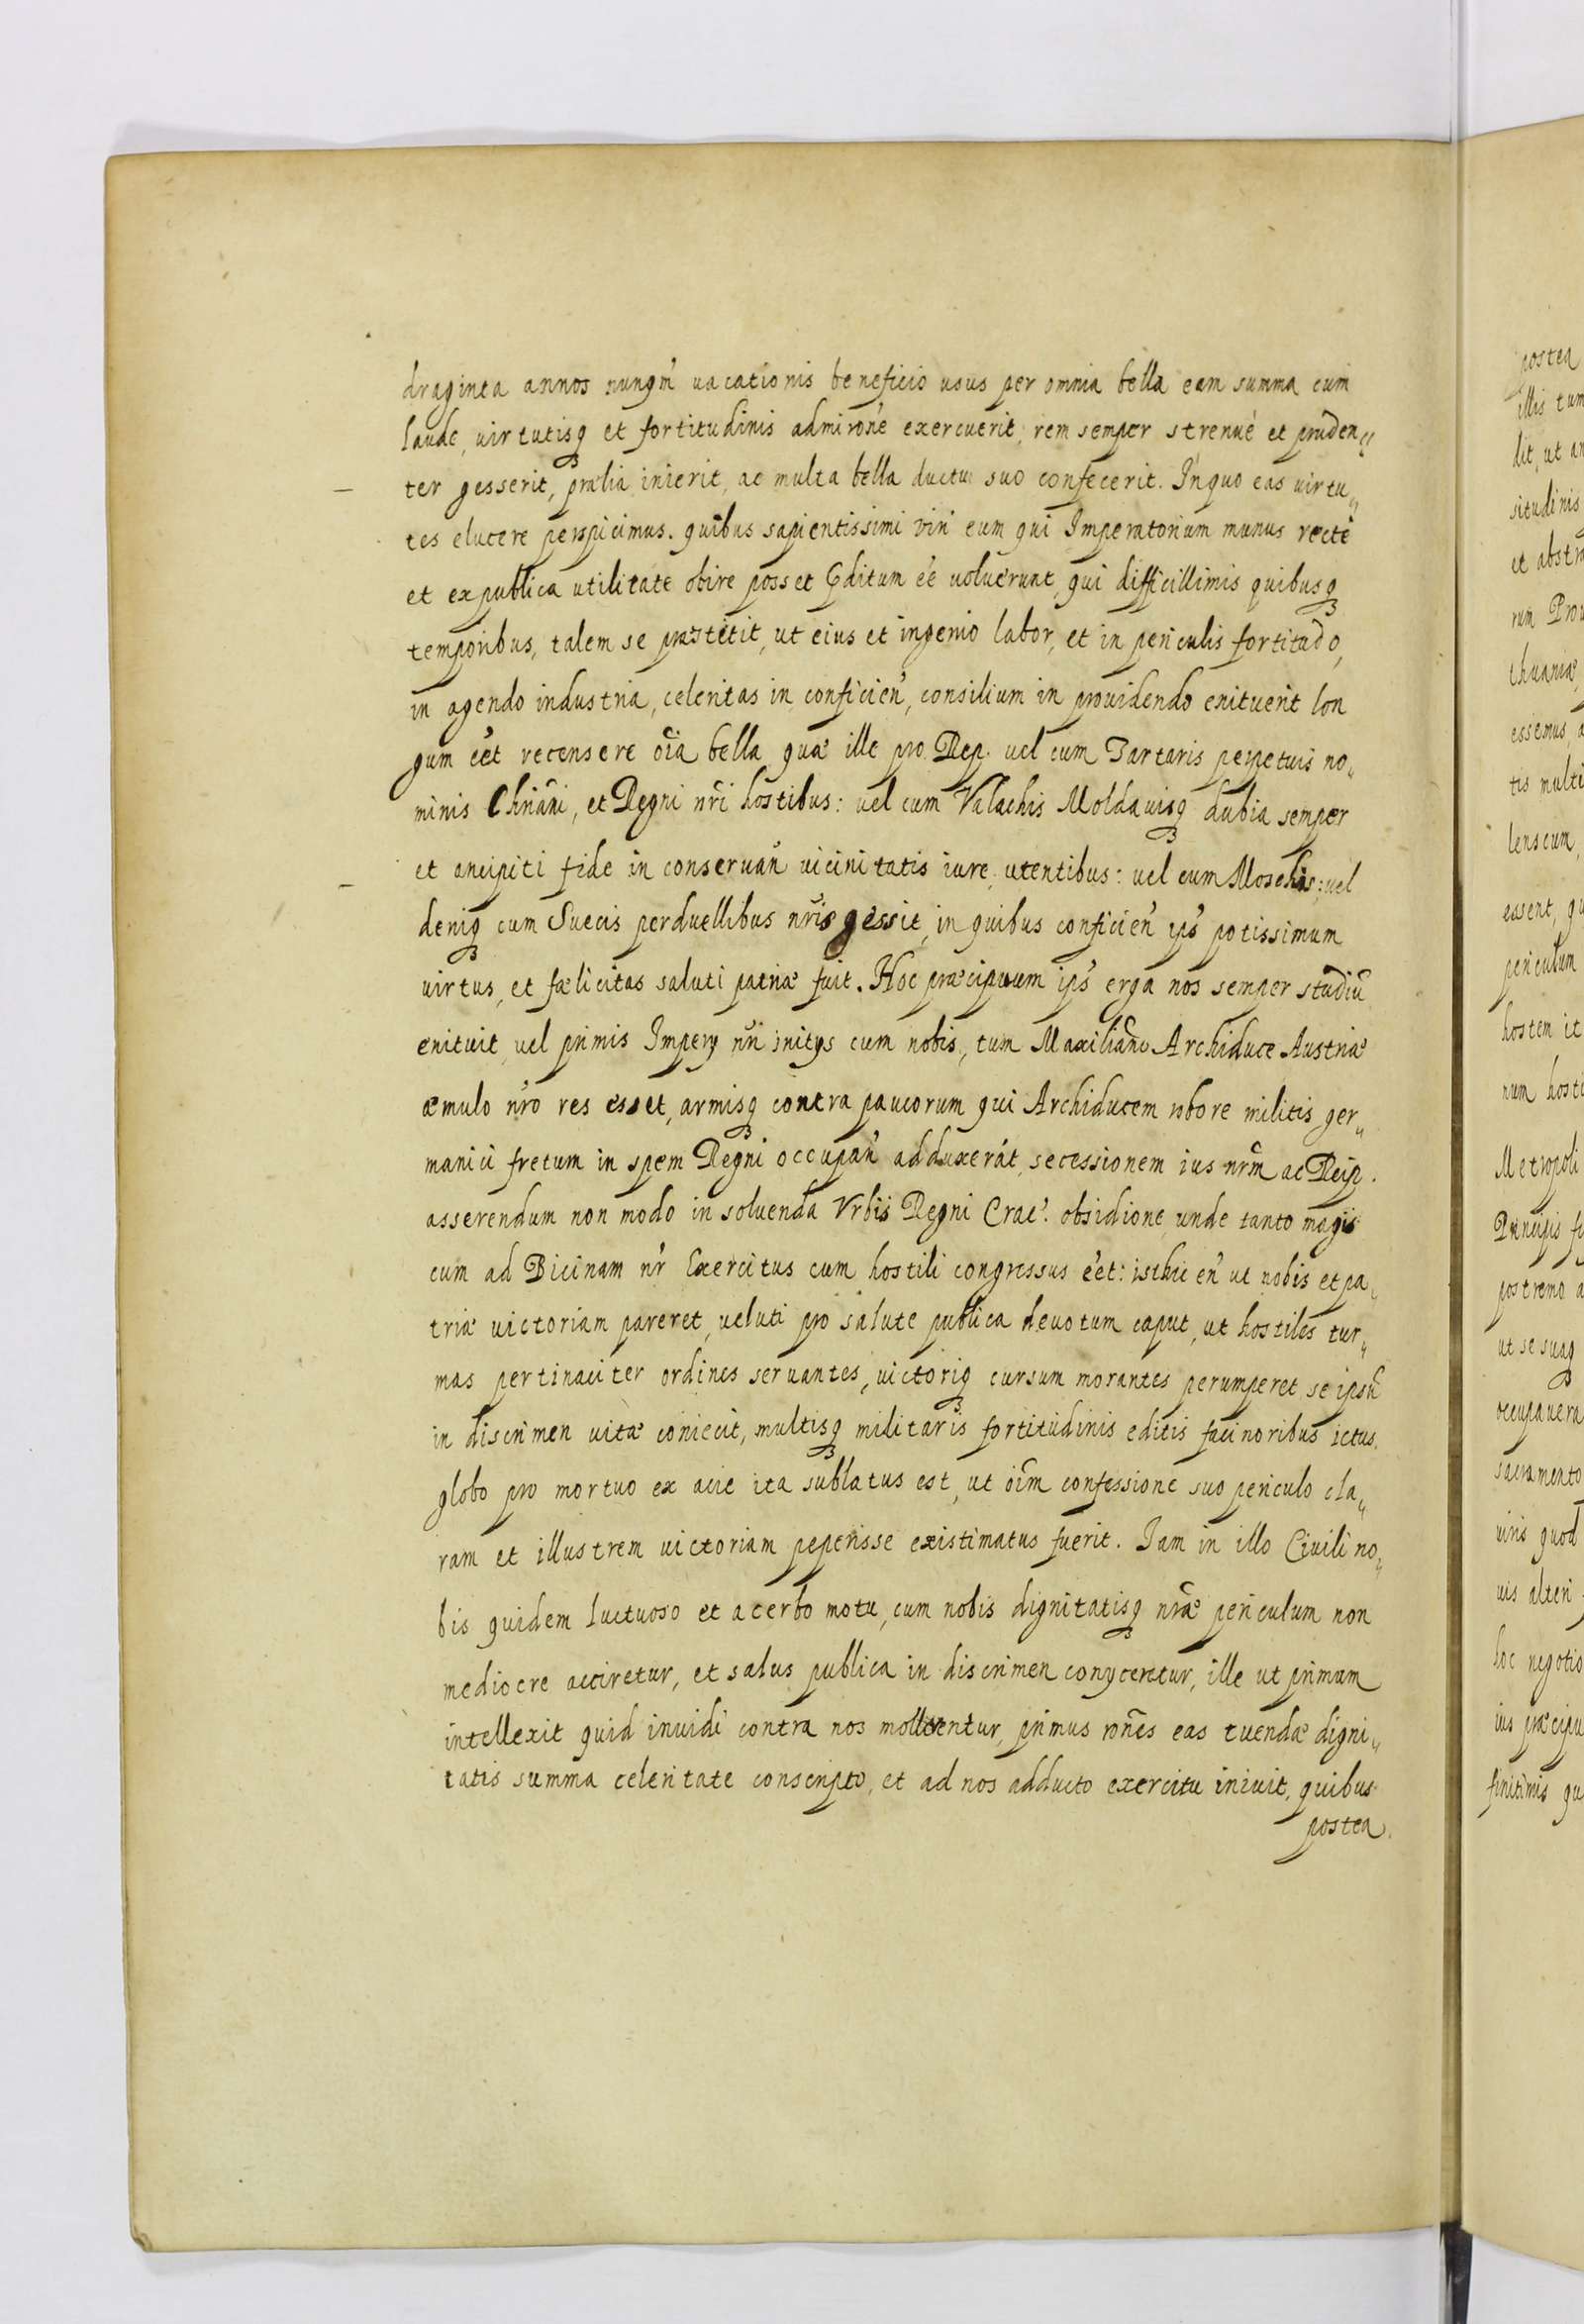 draginta annos nunqm̃ uacationis beneficio usus per omnia bella eam summa cum
laude, uirtutisq et fortitudinis admirone exercuerit, rem semper strenué et pruden„
ter gesserit, prælia inierit, ac multa bella ductu suo confecerit. In quo eas uirtu„
tes elucere perspicimus. quibus sapientissimi viri eum qui Imperatorium munus recte
et ex publica utilitate obire posset pditum eẽ uoluerunt, qui difficillimis quibusq
temporibus, talem se præstitit, ut eius et ingenio labor, et in periculis fortitudo,
in agendo industria, celeritas in conficień, consilium in prouidendo enituerit lon
gum eẽt recensere oĩa bella quæ ille pro Rep. uel cum Tartaris perpetuis no„
minis Chriãni, et Regni nr̃i hostibus: uel cum Valachis Moldauisq dubia semper
et ancipiti fide in conseruań uicinitatis iure utentibus: uel cum Moschis: uel
deniq cum Suecis perduellibus nr̃is gessit, in quibus conficień ips̃ potissimum
uirtus, et fælicitas saluti patriæ fuit. Hoc præcipuum ips̃ erga nos semper studiũ
enituit, uel primis Impery nr̃i initys cum nobis, tum Maxiliãno Archiduce Austriæ
æmulo nr̃o res esset, armisq contra paucorum qui Archiducem robore militis ger„
manici fretum in spem Regni occupań adduxerát, secessionem ius nr̃m ac Reip.
asserendum non modo in soluenda Vrbis Regni Crac. obsidione, unde tanto magis
cum ad Bicinam nr̃ Exercitus cum hostili congressus eẽt: isthic eñ ut nobis et pa„
triæ uictoriam pareret, ueluti pro salute publica deuotum caput, ut hostiles tur„
mas pertinaciter ordines seruantes, uictoriq cursum morantes perumperet se ipsũ
in discrimen uitæ coniecit, multisq militaris fortitudinis editis facinoribus ictus
globo pro mortuo ex acie ita sublatus est, ut oĩm confessione suo periculo cla„
ram et illustrem uictoriam peperisse existimatus fuerit. Iam in illo Ciuili no„
bis quidem luctuoso et acerbo motu, cum nobis dignitatisq nr̃æ periculum non
mediocre acciretur, et salus publica in discrimen conyceretur, ille ut primum
intellexit quid inuidi contra nos molirentur, primus rones eas tuendæ digni„
tatis summa celeritate conscripto, et ad nos adducto exercitu iniuit, quibus
postea
postea
illis tum
dit, ut an
situdinis
et abstra
rum Prou
thuaniæ
essemus, a
tis multi
lens cum
essent, qu
periculum
hostem it
num hosti
Metropoli
Principis
postremo a
ut se suaq
occupauera
sacramento
uiris quod
uis alteri
hoc negotio
ius præcipu
finitimis qu